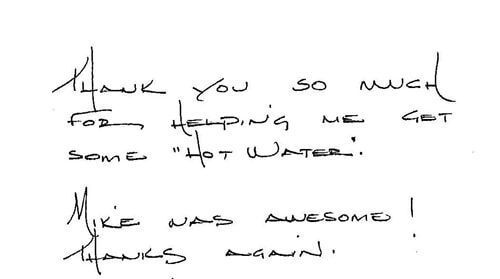 THANK YOU SO MUCH
FOR HELPING ME GET
SOME "HOT WATER".
MIKE WAS AWESOME!
THANKS AGAIN.